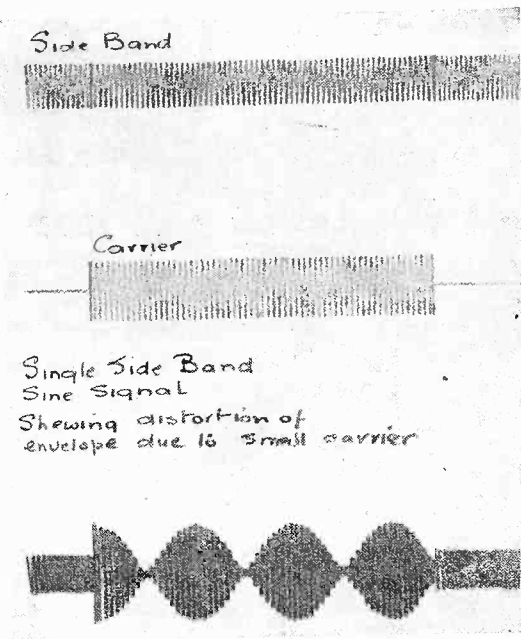 Side Band
Carrier
Single Side Band
Sine Signal
Shewing distortion of
envelope due to small carrier